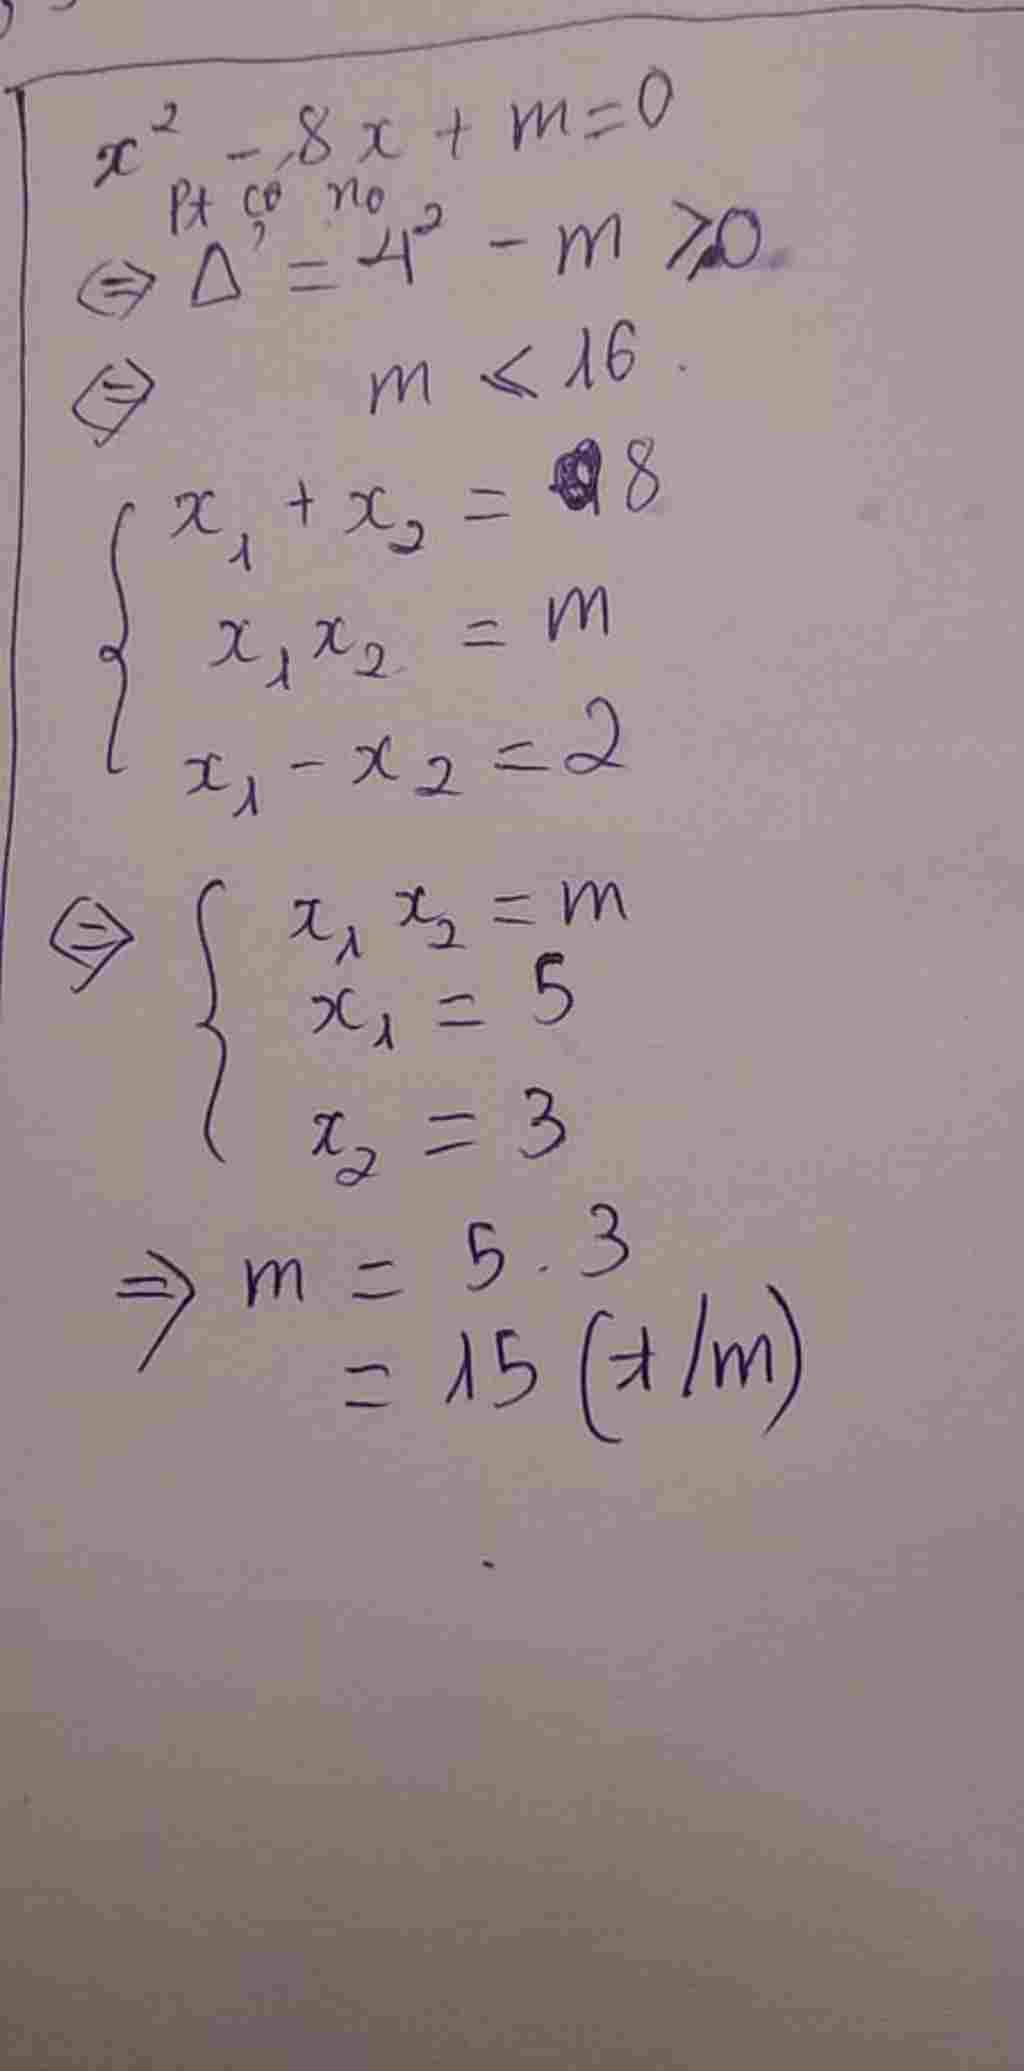 x² - 8x + m = 0
Pt có no
⇔ Δ' = 4² - m ⩾ 0
⇔ m ⩽ 16.
x₁ + x₂ = 8
x₁x₂ = m
x₁ - x₂ = 2
⇔ { x₁x₂ = m
x₁ = 5
x₂ = 3
⇒ m = 5 . 3
= 15 (t/m)